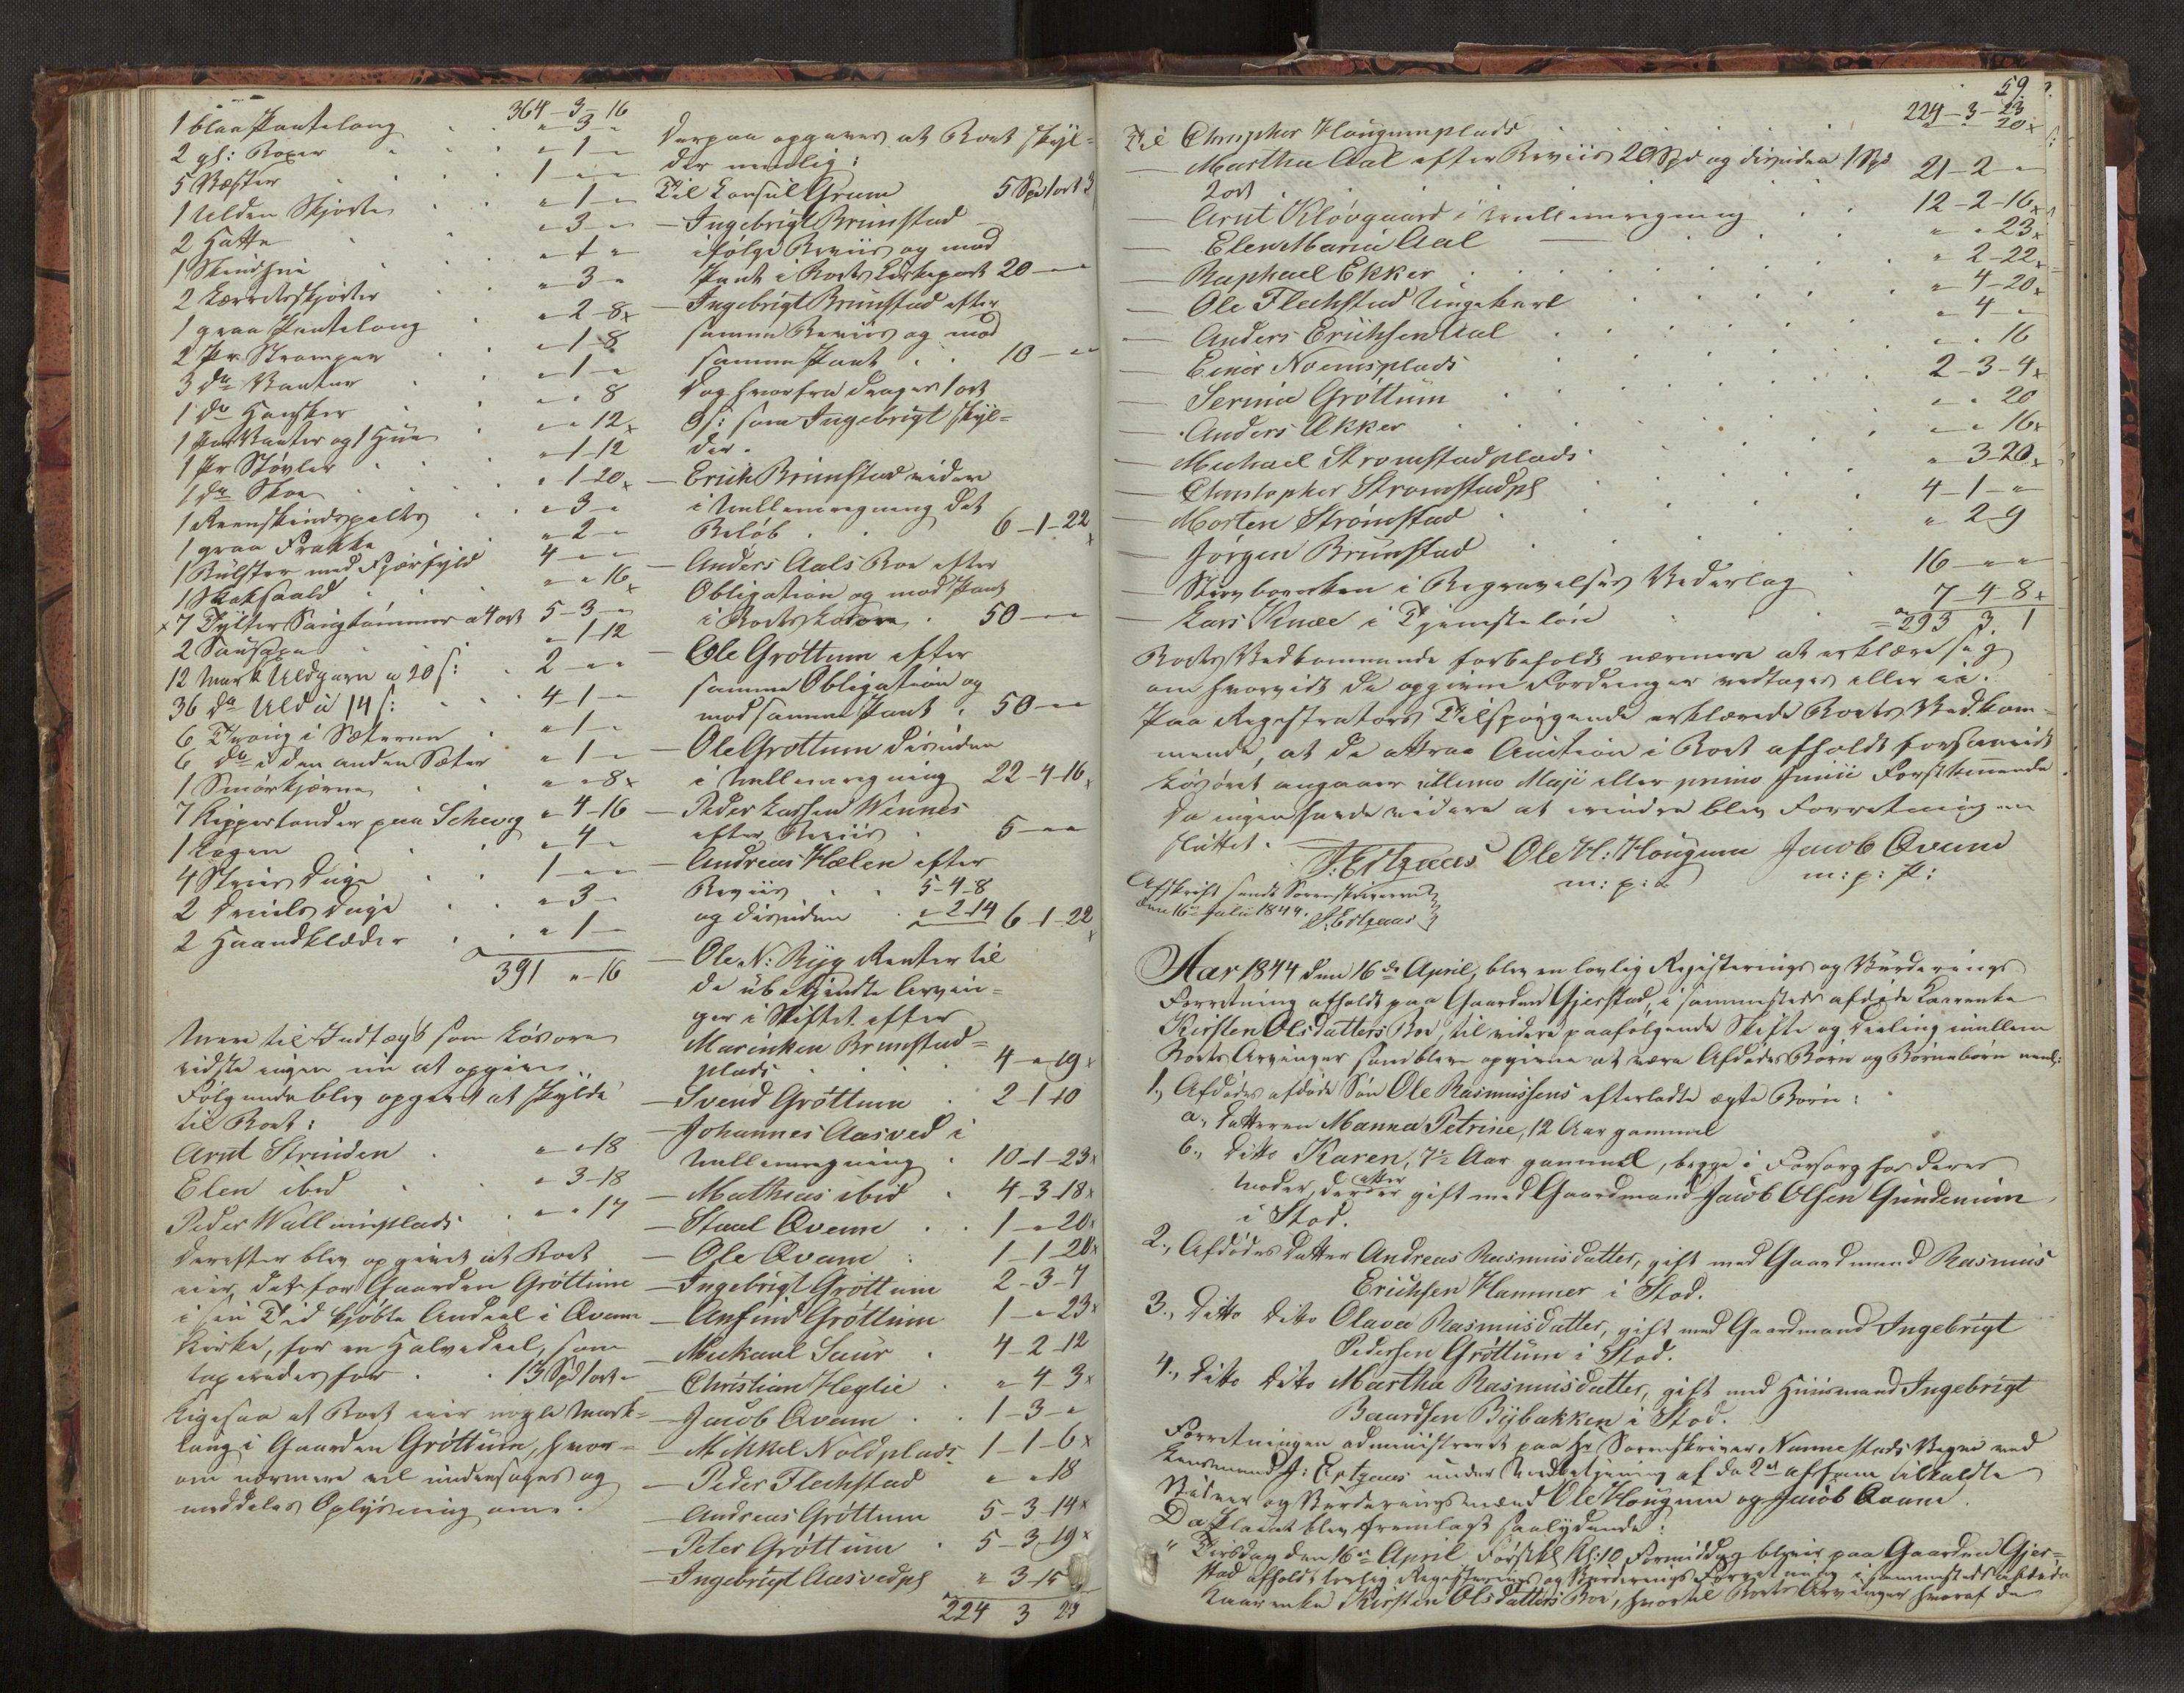 364-3-16
1 blaa Pantelong " 3 "
2 gl: Boxer " 1 "
5 Væster 1 " "
1 Ulden Skjorte " 1 "
2 Hatte " 3 "
1 Skindhue " 1 "
2 Lærretsskjorter " 3 "
1 graa Pantelong " 2-8
2 Pr Strømper " 1-8
3 do Vanter " 1 "
1 do Handsker " " 8
1 Par Vanter og 1 Hue " " 12
1 Pr Støvler " 1-12
1 do Skoe " 1-20
1 Reenskindspelts " 3 "
1 graa Frakke " 2 "
1 Bulster med Fjærfyld 4 " "
1 Skaksaald " " 16
7 Tylter Saugtømmer a 4 ort 5-3 "
2 Saugaxe " 1-12
12 Mark Uldgarn a 20 s: 2 " "
36 do Uld a 14 s: 4-1 "
6 i Sæteren " 1 "
6 do i den anden Sæter " 1 "
1 Smørkjærne " " 8
7 paa Schevig " 4-16
1 Lagen " 4 "
4 Duge 1 " "
2 Dreiels Duge " 3 "
2 Haandklæder " 1 "
391 " 16
Mere til Indtægt som Løsøre
vidste ingen nu at opgive.
Følgende blev opgivet at skylde
til Boet:
Arnt Strinden " " 18
Elen ibid " 3-18
Peder Wallumplads " " 17
Derefter blev opgivet at Boet
eier det for Gaarden Grøttum
i sin Tid kjøbte Andeel i Qvam
Kirke, for en Halvedeel, som
taxeredes for 13 Spd 1 ort "
Ligesaa at Boet eier nogle Mark-
laug i Gaarden Grøttum, hvor-
om nærmere vil undersøges og
meddeles Oplysning om.
Derpaa opgaves at Boet skyl-
der nemlig:
Til Consul Gram 5 Spd 1 ort 3
— Ingebrigt Brunstad
ifølge Beviis og mod
Pant i Boets Kirkepart 20 " "
— Ingebrigt Brunstad efter
samme Beviis og mod
samme Pant 10 " "
Dog herfra drages 1 ort
9 s: som Ingebrigt skyl-
der.
— Erich Brunstad videre
i Mellemregning det
Beløb 6-1-22
— Anders Aals Boe efter
Obligation og mod Pant
i Boets Løsøre 50 " "
— Ole Grøttum efter
samme Obligation og
mod samme Pant 50 " "
— Ole Grøttum desuden
i Mellemregning 22-4-16
— Peder Larsen Wennes
efter Beviis 5 " "
— Andreas Hælen efter
Beviis 5-4-8
og desuden " 2-14 6-1-22
— Ole N: Ryg Renter til
de ubekjendte Arvin-
ger i Skiftet efter
Marinken Brunstad-
plads 4 " 19
— Svend Grøttum 2-1-10
— Johannes Aasved i
Mellemregning 10-1-23
— Mathias ibid 4-3-18
— Staal Qvam 1 " 20
— Ole Qvam 1-1-20
— Ingebrigt Grøttum 2-3-7
— Anfind Grøttum 1 " 23
— Mickael Saur 4-2-12
— Christian Heglie " 4 3
— Jacob Qvam 1-3 "
— Mikkel Noldplads 1-1-6
— Peder Flechstad " " 18
— Andreas Grøttum 5-3-14
— Peter Grøttum 5-3-19
— Ingebrigt Aasvedpl " 3-15
224 3 23
59
224-3-23
Til Christopher Haugumplads 20
— Martha Aal efter Beviis 20 Spd og desuden 1 Spd
2 ort 21-2 "
— Arnt Kløvgaard i Mellemregning 12-2-16
— Elen Maria Aal " " 23
— Raphael Ekker " 2-22
— Ole Flechstad Ungekarl " 4-20
— Anders Erichsen Aal " 4 "
— Einer Noemsplads " " 16
— Serina Grøttum 2-3-4
— Anders Ekker " " 20
— Michael Stromstadplads " " 16
— Christopher Stromstadpl " 3-20
— Morten Strømstad 4-1 "
— Jørgen Brunstad " 2 9
— i Begravelses Vederlag 16 " "
— Lars i Tjenesteløn 7-4-8
293 3 1
Boets Vedkommende forbeholdt nærmere at erklære sig
om hvorvidt de opgivne Fordringer vedtages eller ei.
Paa Registrators Tilspørgende erklærede Boets Vedkom-
mende, at de attraa Auction i Boet afholdt forsaavidt
Løsøret angaaer ultimo Maji eller primo Junii Førstkommende
Da ingen havde videre at erindre blev Forretningen
sluttet.
Ole H: Haugum Jacob Qvam
m: p: P: m: p: P:
Afskrift sendt Sorenskriveren
den 16de Julii 1844.
Aar 1844 den 16de April, blev en lovlig Registerings og Vurderings
Forretning afholdt paa Gaarden Gjerstad, i sammesteds afdøde Kaarenke
Kirsten Olsdatters Boe, til videre paafølgende Skifte og Deeling imellem
Boets Arvinger som bleve opgivne at være Afdødes Børn og Børnebørn neml:
1., Afdødes afdøde Søn Ole Rasmussens efterladte ægte Børn:
a., Datteren Manna Petrine, 12 Aar gammel
b., Ditto Karen, 7½ Aar gammel, begge i Forsorg hos deres
Moder, der atter er gift med Gaardmand Jacob Olsen Gundenum
i Stod.
2., Afdødes Datter Andreas Rasmusdatter, gift med Gaardmand Rasmus
Erichsen Hammer i Stod.
3., Ditto Ditto Olava Rasmusdatter, gift med Gaardmand Ingebrigt
Pedersen Grøttum i Stod.
4., Ditto Ditto Martha Rasmusdatter, gift med Huusmand Ingebrigt
Baardsen Bybakken i Stod.
Forretningen administreret paa Hr Sorenskriver Nannestads Vegne ved
Lensmand under Medbetjening af de 2de af ham tilkaldte
Vidner og Vurderingsmænd Ole Haugum og Jacob Qvam.
Da Placat blev fremlagt saalydende:
" Tirsdag den 16de April Førstk Kl: 10 Formiddag bliver paa Gaarden Gjer-
stad afholdt lovlig Registerings og Vurderings Forretning i sammesteds afdøde
Kaarenke Kirsten Olsdatters Boe, hvortil Boets Arvinger hvoraf de